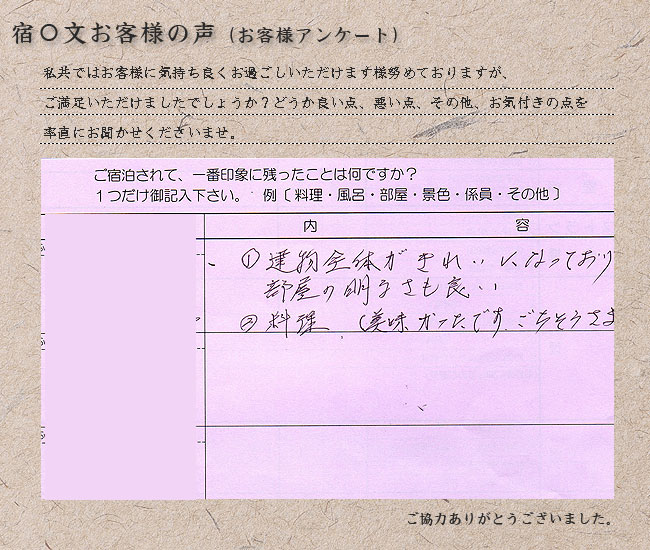 宿〇文お客様の声（お客様アンケート）
私共ではお客様に気持ち良くお過ごしいただけます様努めておりますが、
ご満足いただけましたでしょうか？どうか良い点、悪い点、その他、お気付きの点を
率直にお聞かせくださいませ。
ご宿泊されて、一番印象に残ったことは何ですか？
１つだけ御記入下さい。 例〔料理・風呂・部屋・景色・係員・その他〕
内 容
① 建物全体がきれいになっており
部屋の明るさも良い
② 料理 （美味かったです。ごちそうさま
ご協力ありがとうございました。